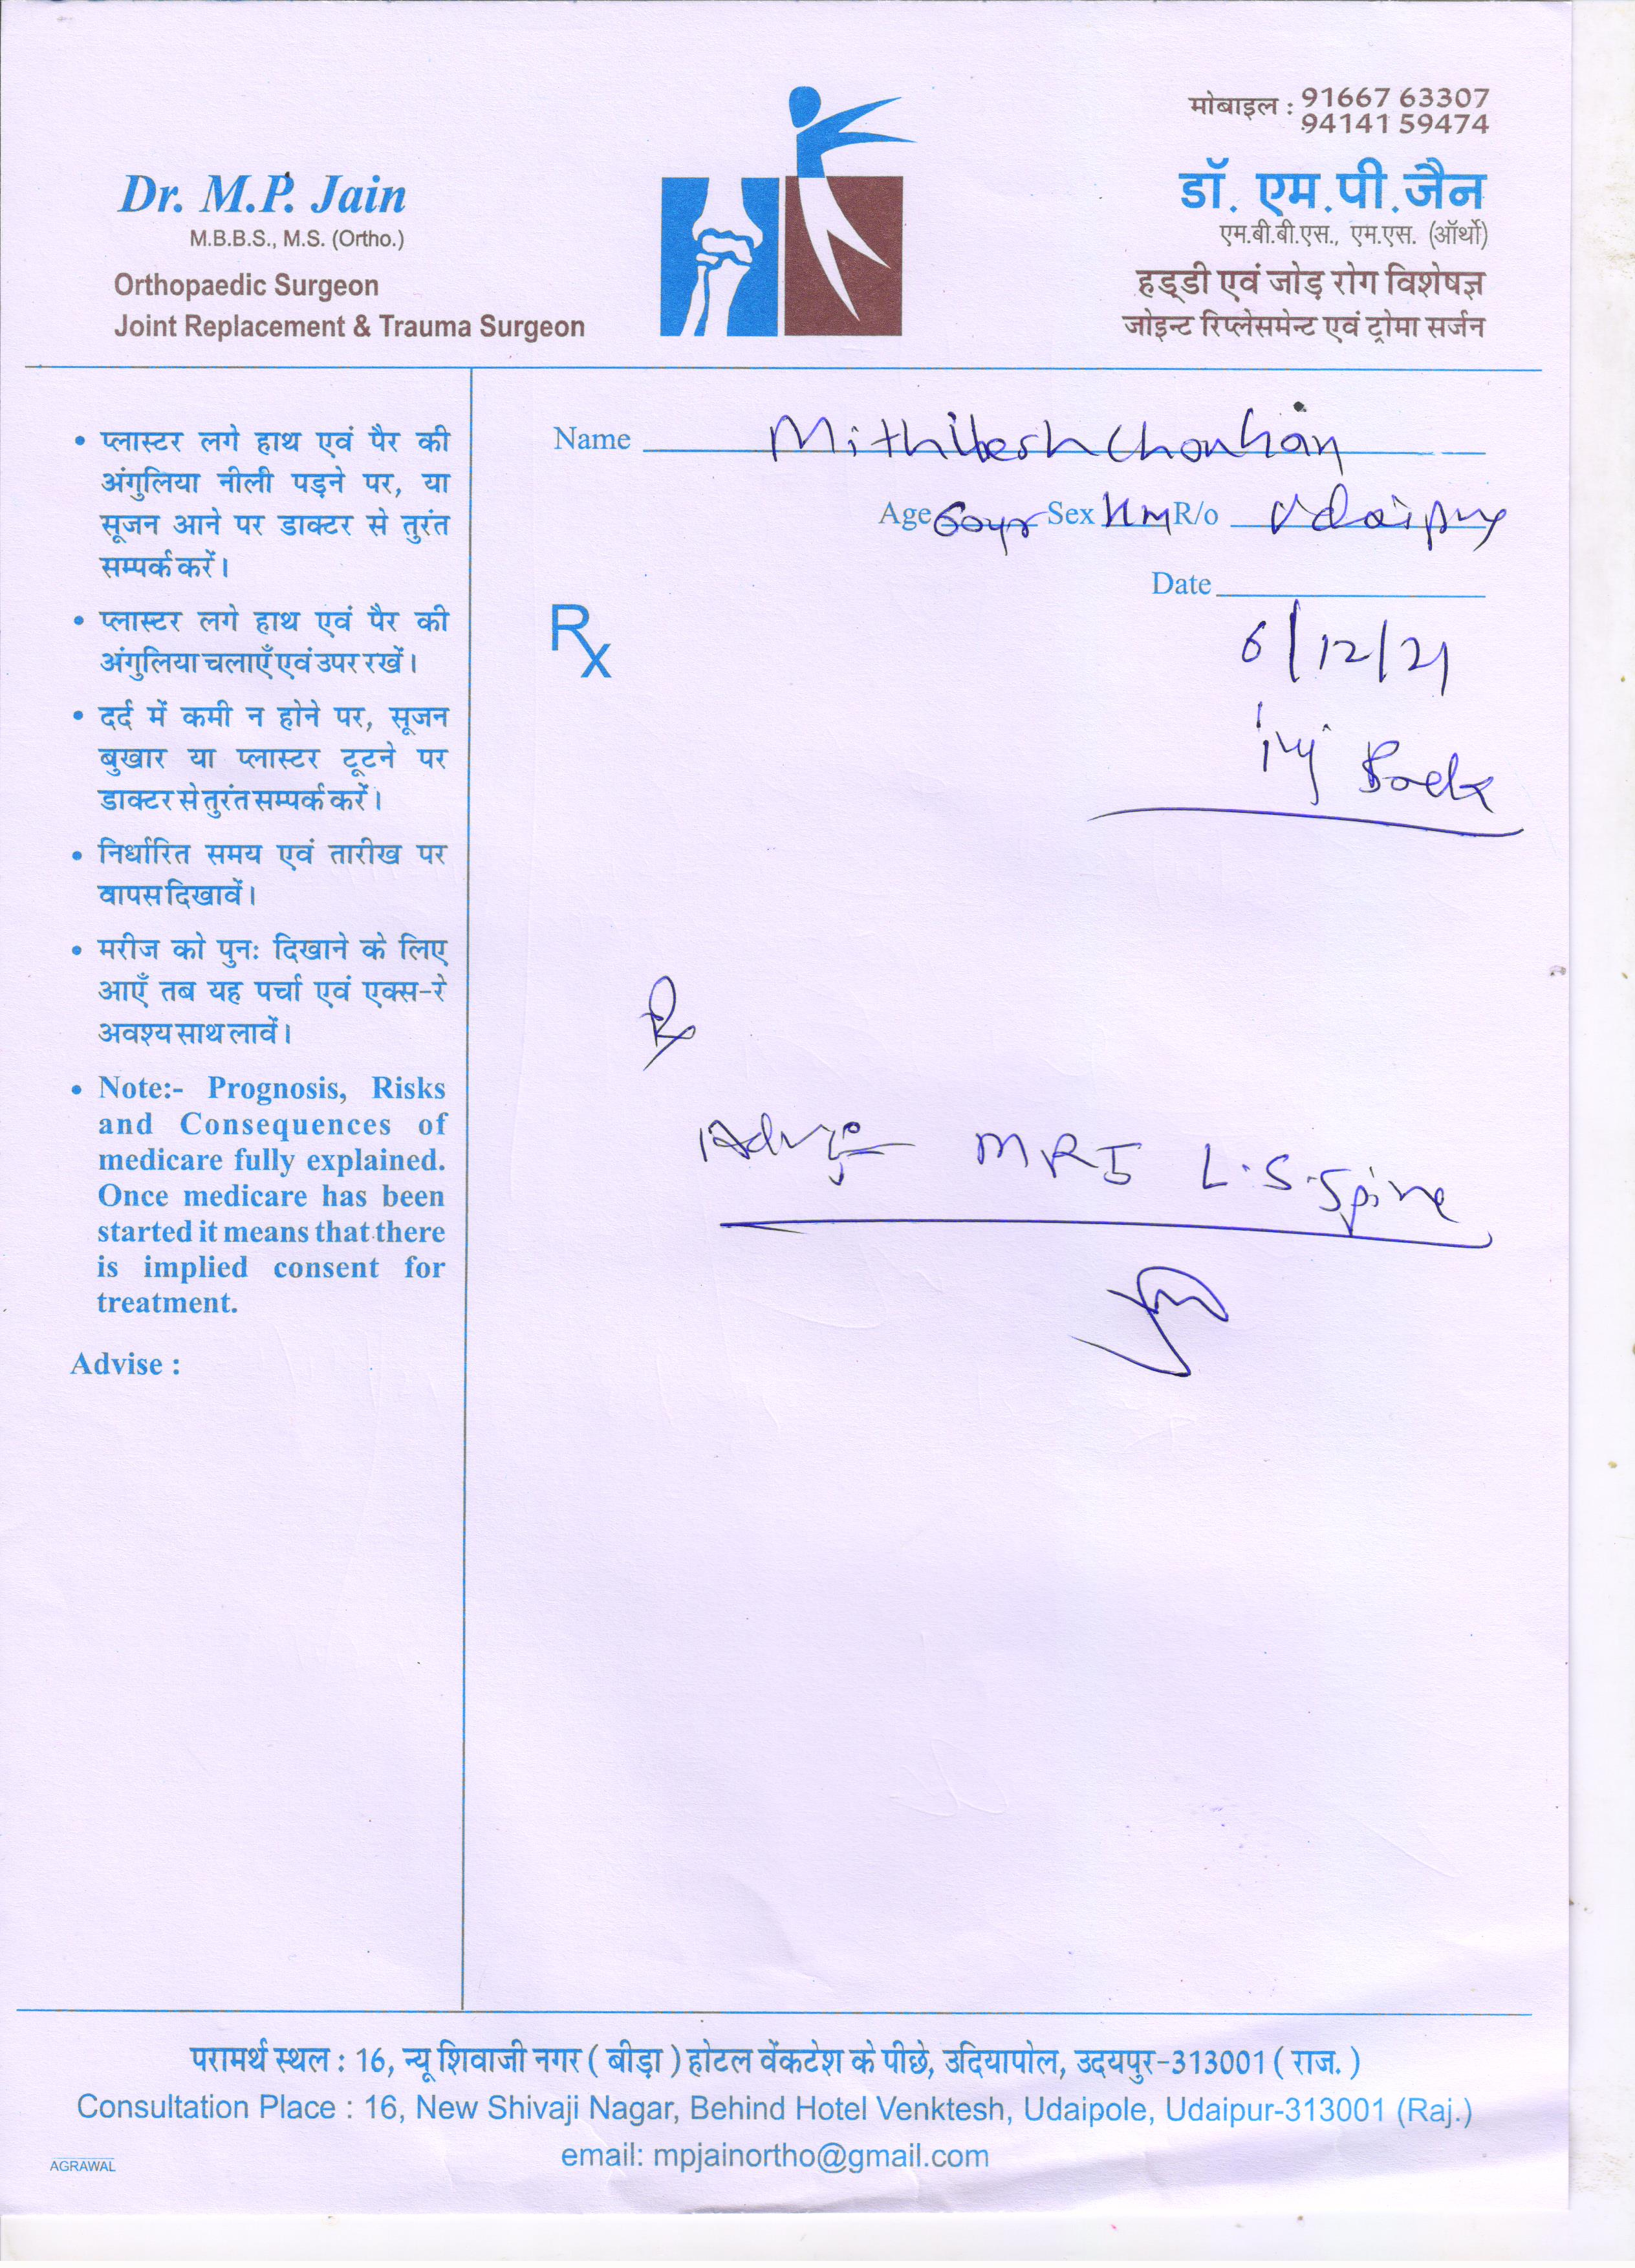 मोबाइल : 91667 63307
94141 59474
Dr. M.P. Jain
M.B.B.S., M.S. (Ortho.)
Orthopaedic Surgeon
Joint Replacement & Trauma Surgeon
डॉ. एम.पी.जैन
एम.बी.बी.एस., एम.एस. (ऑर्थो)
हड्डी एवं जोड़ रोग विशेषज्ञ
जोइन्ट रिप्लेसमेन्ट एवं ट्रोमा सर्जन
• प्लास्टर लगे हाथ एवं पैर की
अंगुलिया नीली पड़ने पर, या
सूजन आने पर डाक्टर से तुरंत
सम्पर्क करें।
• प्लास्टर लगे हाथ एवं पैर की
अंगुलिया चलाएँ एवं उपर रखें।
• दर्द में कमी न होने पर, सूजन
बुखार या प्लास्टर टूटने पर
डाक्टर से तुरंत सम्पर्क करें।
• निर्धारित समय एवं तारीख पर
वापस दिखावें।
• मरीज को पुनः दिखाने के लिए
आएँ तब यह पर्चा एवं एक्स-रे
अवश्य साथ लावें।
• Note:- Prognosis, Risks
and Consequences of
medicare fully explained.
Once medicare has been
started it means that there
is implied consent for
treatment.
Advise :
Name Mithilesh Chouhan
Age 60yr Sex R/o Udaipur
Date
Rx
6/12/21
inj Back
Rx
Advise MRI L.S. Spine
परामर्थ स्थल : 16, न्यू शिवाजी नगर ( बीड़ा ) होटल वेंकटेश के पीछे, उदियापोल, उदयपुर-313001 ( राज. )
Consultation Place : 16, New Shivaji Nagar, Behind Hotel Venktesh, Udaipole, Udaipur-313001 (Raj.)
email: mpjainortho@gmail.com
AGRAWAL